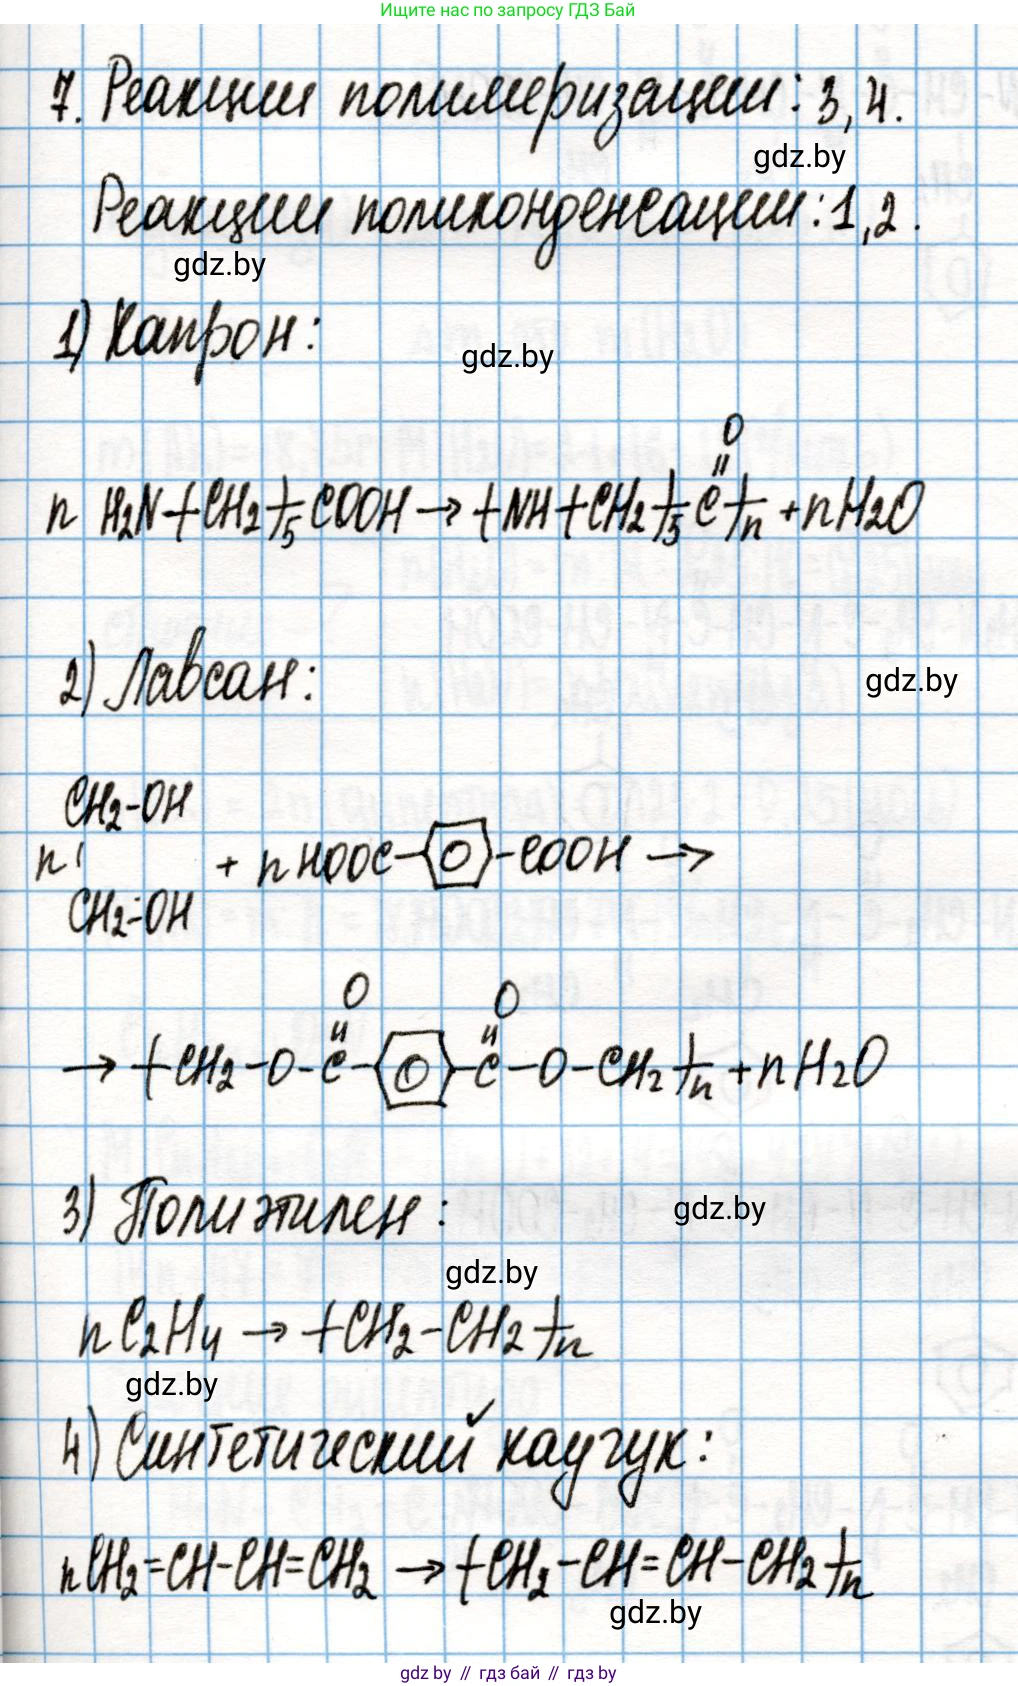 Ищите нас по запросу ГДЗ Бай
7. Реакции полимеризации: 3, 4.
gdz.by
Реакции поликонденсации: 1, 2.
gdz.by
1) Капрон:
gdz.by
O
||
n H₂N-(CH₂)-₅COOH → (-NH-(CH₂)-₅C-)n + nH₂O
2) Лавсан:
gdz.by
CH₂-OH
n | + n HOOC-⌬-COOH →
CH₂-OH
O O
|| ||
→ (-CH₂-O-C-⌬-C-O-CH₂-)n + nH₂O
3) Полиэтилен:
gdz.by
gdz.by
nC₂H₄ → (-CH₂-CH₂-)n
gdz.by
4) Синтетический каучук:
nCH₂=CH-CH=CH₂ → (-CH₂-CH=CH-CH₂-)n
gdz.by
gdz by // гдз бай // гдз by